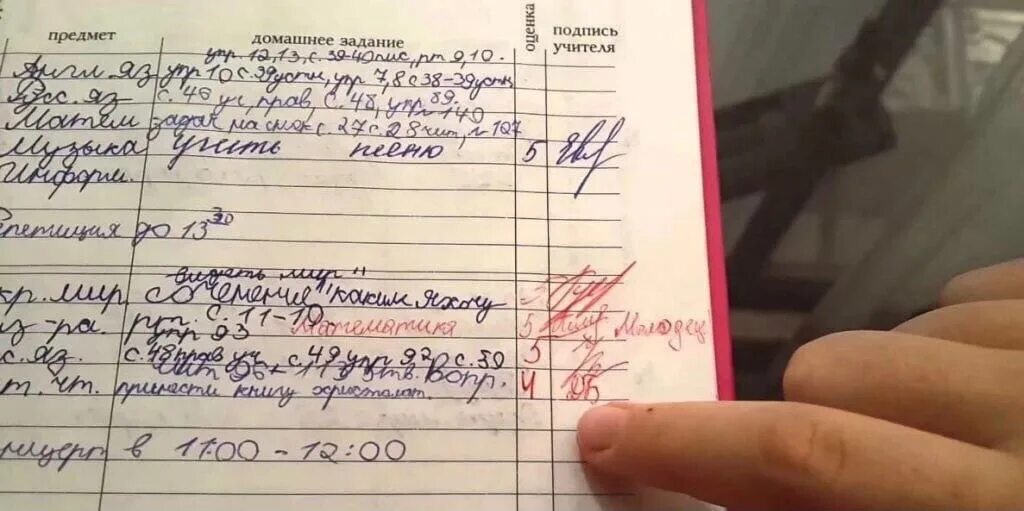 предмет домашнее задание оценка подпись учителя
упр. 12,13, с. 39-40 пис, рт 9,10.
Англ. яз упр 10 с 39 устн, упр 7,8 с 38-39 устн
Русс. яз с. 46 уч. прав, с. 48, упр 89.
Матем задач на смек с. 27 с. 28 чит, № 107 140
Музыка учить песню 5
Информ.
репетиция до 13 30
видеть мир"
кр. мир сочинение "каким я хочу
из-ра. рт. с. 11-10 Математика 5 Молодец!
упр 93
с. яз. с. 48 прав уч с. 49 упр 92 с. 50 5
чит 96 - 11 отв. Вопр.
т. чт. принести книгу христомат. 4
нцерт в 11:00 - 12:00